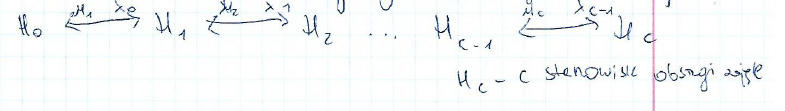 H₀ ⟷ μ₁ λ₀ H₁ ⟷ μ₂ λ₁ H₂ ... H_{c-1} ⟷ μ_c λ_{c-1} H_c
H_c - c stanowisk obsługi zajęte